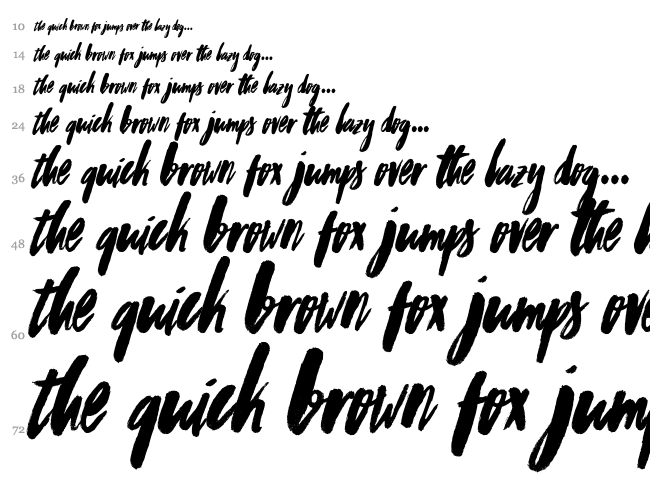 10 the quick brown fox jumps over the lazy dog...
14 the quick brown fox jumps over the lazy dog...
18 the quick brown fox jumps over the lazy dog...
24 the quick brown fox jumps over the lazy dog...
36 the quick brown fox jumps over the lazy dog...
48 the quick brown fox jumps over the l
60 the quick brown fox jumps ove
72 the quick brown fox jum